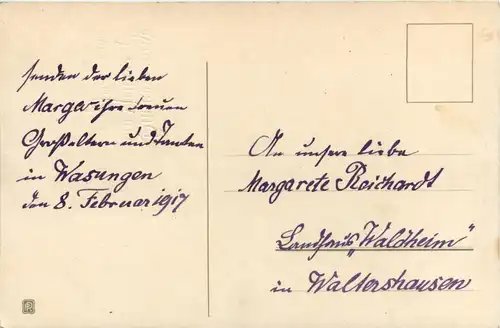 senden der lieben
Marga ihre treuen
Großeltern und Tanten
in Wasungen
den 8. Februar 1917
An unsere liebe
Margarete Reichardt
Landhaus „Waldheim"
in Waltershausen